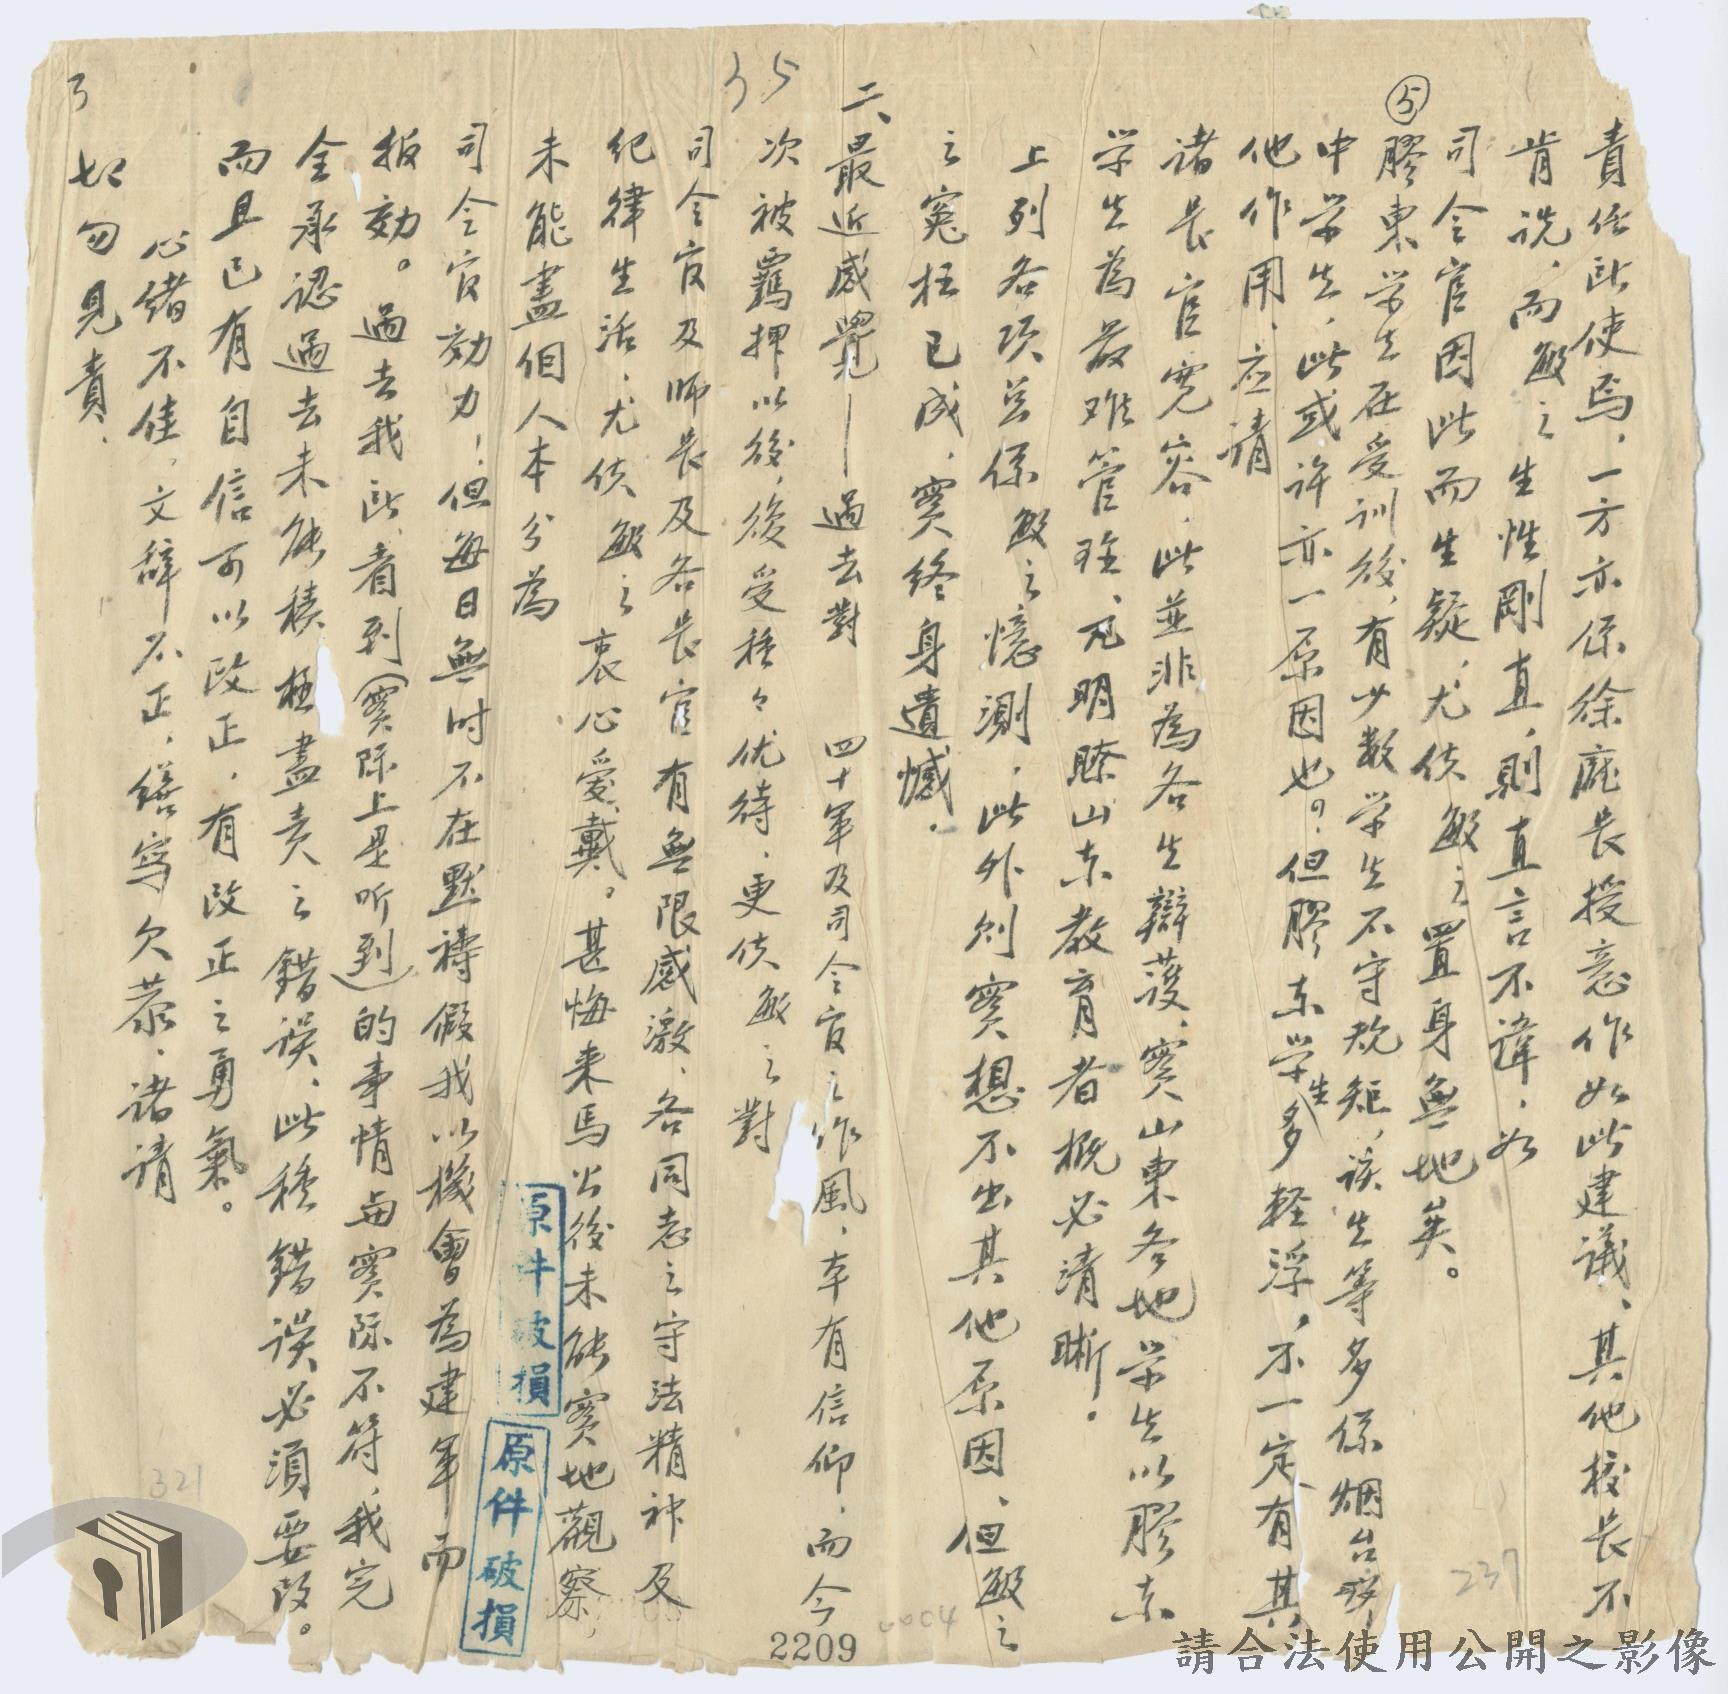 責任所使焉，一方亦係徐廳長授意作如此建議、其他校長不
肯說，而敏之生性剛直，則直言不諱，如
司令官因此而生疑，尤使敏之置身無地矣。
⑤膠東学生在受訓後，有少数学生不守規矩，該生等多係烟台聯
中学生，此或许亦一原因也。但膠东学生多輕浮，不一定有其
他作用，应請
諸長官寬容，此並非為各生辯護，實山東各地学生以膠东
学生為最难管理，凡明瞭山东教育者概必清晰。
上列各項总係敏之憶測，此外則實想不出其他原因，但敏之
之寃枉已成，實終身遺憾。
二、最近感覺——過去對　四十軍及司令官之作風，本有信仰，而今
次被羈押以後，後受種々优待，更使敏之對
司令官及師長及各長官有無限感激，各同志之守法精神及
纪律生活，尤使敏之衷心愛戴。甚悔来馬公後未能實地觀察，
未能盡個人本分為
司令官効力！但每日無时不在默禱假我以機會為建軍而
报効。過去我所看到(實际上是听到)的事情與實际不符，我完
全承認過去未能積極盡责之錯误，此種錯误必須要改。
而且已有自信可以改正，有改正之勇氣。
心绪不佳，文辞不正，缮写欠恭，诸请
勿見責，
35
3
237
0004
321
2209
原件破損
原件破損
請合法使用公開之影像